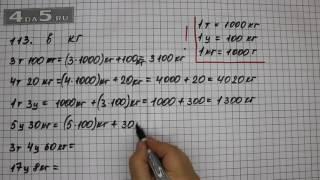 4DA5.RU
113. в кг
1 т = 1000 кг
1 ц = 100 кг
1 кг = 1000 г
3 т 100 кг = (3·1000) кг + 100 = 3100 кг
4 т 20 кг = (4·1000) кг + 20 кг = 4000 + 20 = 4020 кг
1 т 3 ц = 1000 кг + (3·100) кг = 1000 + 300 = 1300 кг
5 ц 30 кг = (5·100) кг + 30
3 т 4 ц 60 кг =
17 ц 8 кг =